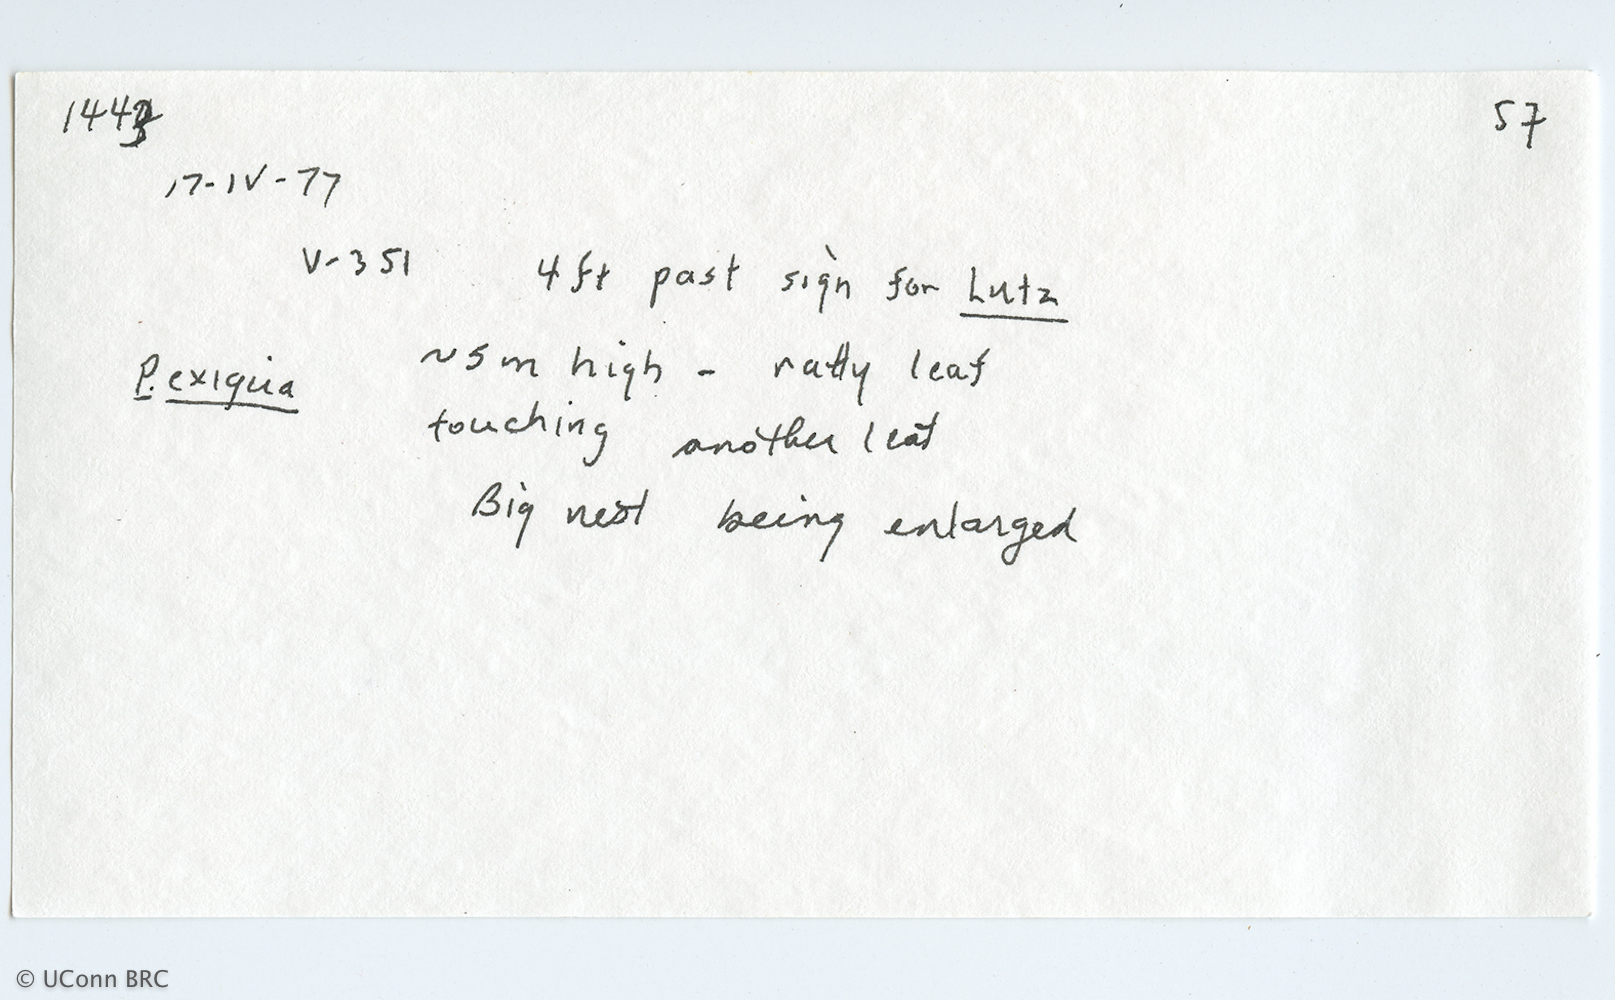 1443 57
17-IV-77
V-351 4 ft past sign for Lutz
P. exiqua ~5m high - ratty leaf
touching another leaf
Big nest being enlarged
© UConn BRC